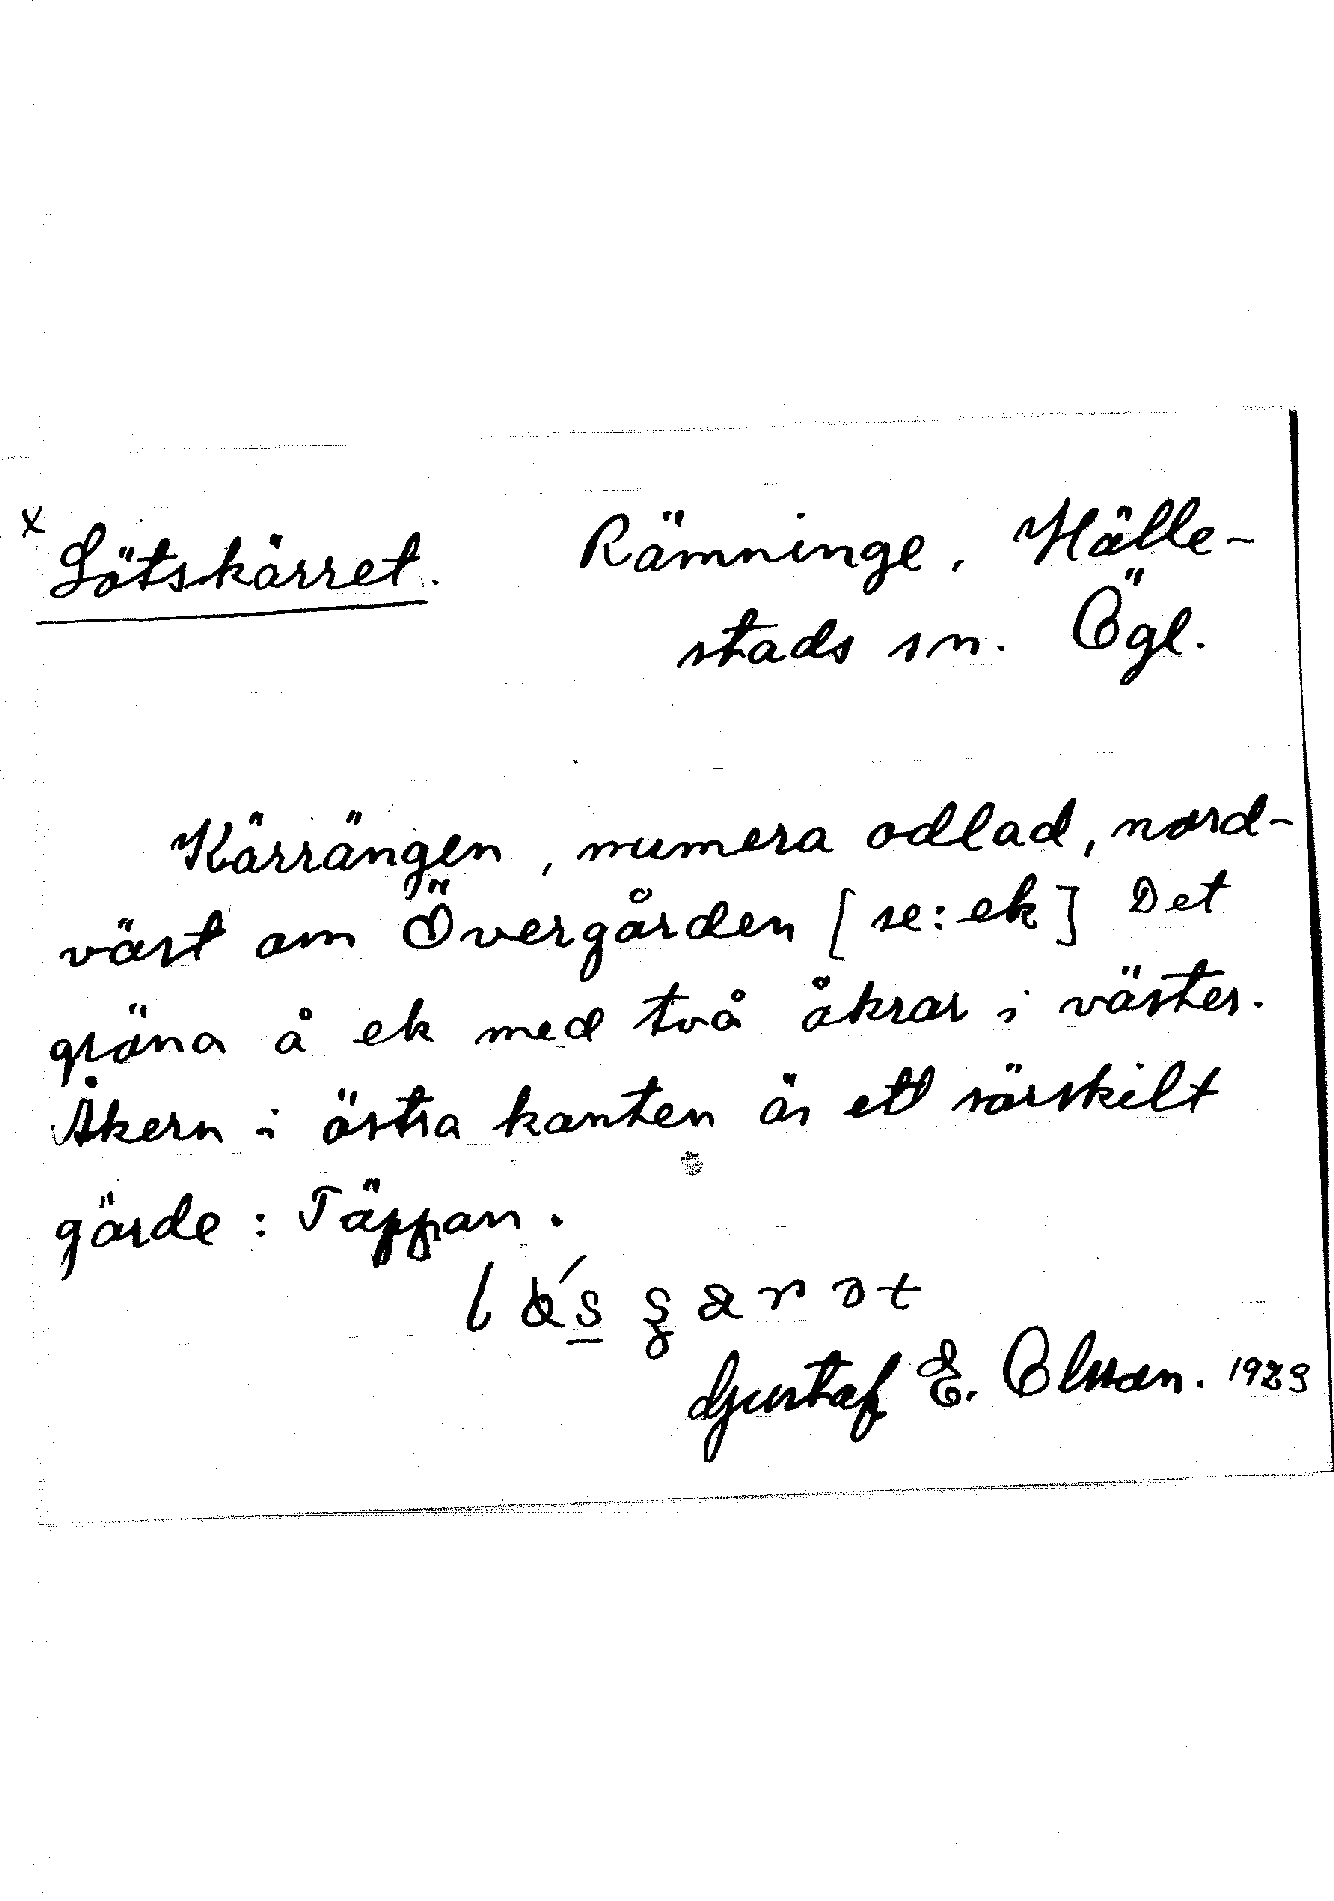 x Lötskärret. Rämninge, Hälle-
stads sn. Ögl.
Kärrängen, numera odlad, nord-
väst om Övergården [se: ek] Det
gröna å ek med två åkrar i väster.
Åkern i östra kanten är ett särskilt
gärde: Täppan.
Gustaf E. Olsson. 1929